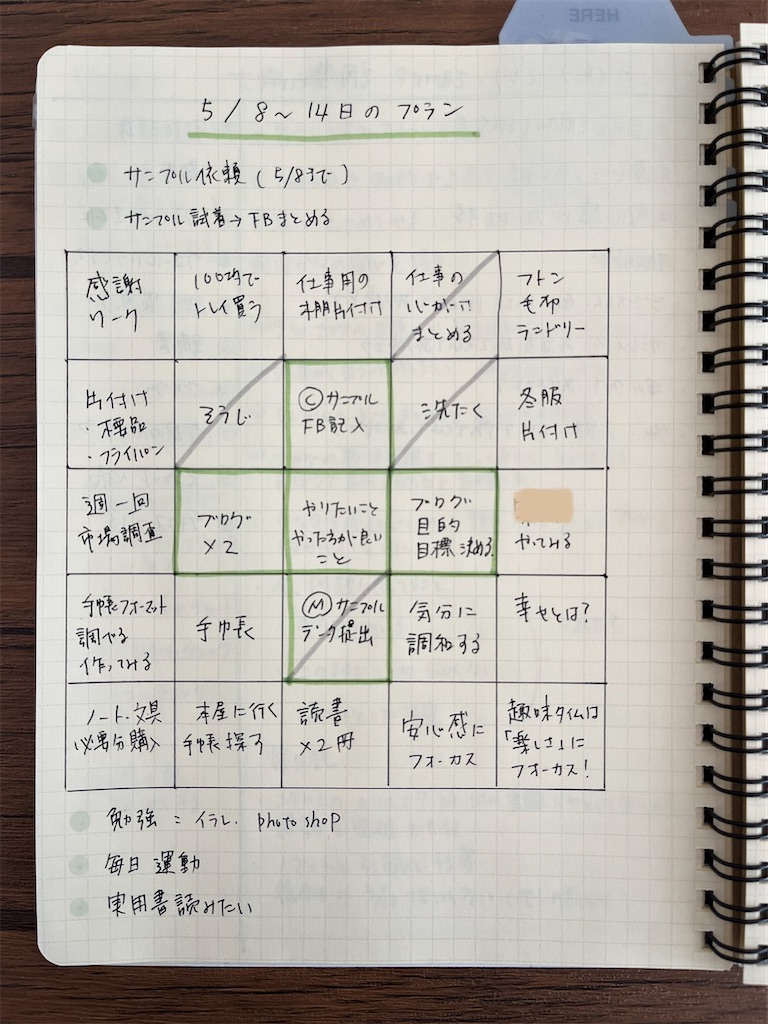 HERE
5/8〜14日のプラン
サンプル依頼(5/8まで)
サンプル試着→FBまとめる
感謝
ワーク
100均で
トレイ買う
仕事用の
棚片付け
仕事の
心がけ
まとめる
フトン
毛布
ランドリー
片付け
・フライパン
そうじ
Ⓒサンプル
FB記入
洗たく
冬服
片付け
週一回
市場調査
ブログ
×2
やりたいこと
やった方が良い
こと
ブログ
目的
目標決める
やってみる
手帳フォーマット
調べる
作ってみる
手帳
Ⓜサンプル
データ提出
気分に
調和する
幸せとは?
ノート・文具
必要分購入
本屋に行く
手帳探す
読書
×2冊
安心感に
フォーカス
趣味タイムは
「楽しさ」に
フォーカス!
勉強:イラレ. photoshop
毎日運動
実用書読みたい